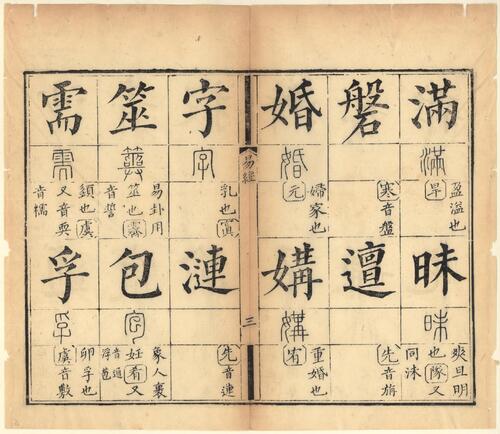 滿
滿
盈溢也
旱
昧
昧
爽旦明
也隊又
同沬
磐
寒音盤
邅
先音旃
婚
婚
婚家也
元
媾
媾
重婚也
宥
易經
三
字
字
乳也寘
漣
先音連
筮
筮
易卦用
筮也霽
音誓
包
包
象人裹
妊肴又
需
需
也虞
又音耎
孚
孚
卵孚也
虞音敷